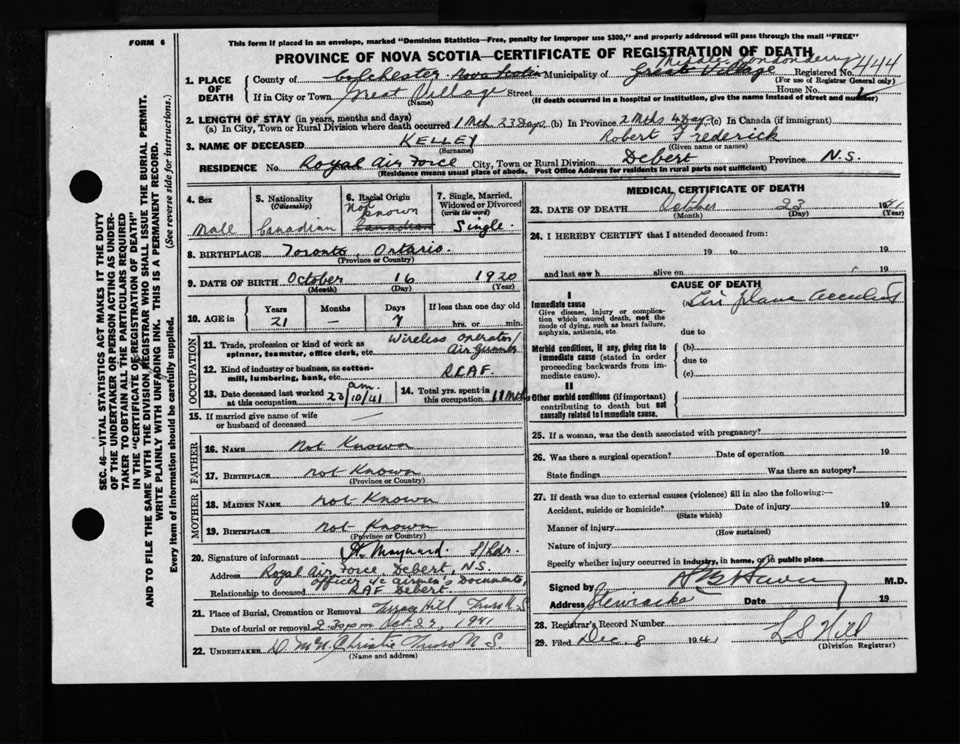 FORM 6
This form if placed in an envelope, marked "Dominion Statistics—Free, penalty for improper use $300," and properly addressed will pass through the mail "FREE"
PROVINCE OF NOVA SCOTIA—CERTIFICATE OF REGISTRATION OF DEATH
1. PLACE OF DEATH
County of Colchester Nova Scotia Municipality of Great Village Londonderry Registered No. 444
(For use of Registrar General only)
If in City or Town Great Village Street House No.
(Name) (If death occurred in a hospital or institution, give the name instead of street and number)
2. LENGTH OF STAY (in years, months and days)
(a) In City, Town or Rural Division where death occurred 1 Mth 23 Days (b) In Province 2 Mths 4 Days (c) In Canada (if immigrant)
3. NAME OF DECEASED KELLEY Robert Frederick
(Surname) (Given name or names)
RESIDENCE No. Royal Air Force City, Town or Rural Division Debert Province N.S.
(Residence means usual place of abode. Post Office Address for residents in rural parts not sufficient)
4. Sex
Male
5. Nationality (Citizenship)
Canadian
6. Racial Origin
Not Known
Canadian
7. Single, Married, Widowed or Divorced (write the word)
Single.
8. BIRTHPLACE Toronto, Ontario.
(Province or Country)
9. DATE OF BIRTH October 16 1920
(Month) (Day) (Year)
10. AGE in Years Months Days If less than one day old
21 — 7 hrs. or min.
OCCUPATION
11. Trade, profession or kind of work as spinner, teamster, office clerk, etc. Wireless Operator/ Air Gunner
12. Kind of industry or business, as cotton-mill, lumbering, bank, etc. R.C.A.F.
13. Date deceased last worked at this occupation am 23/10/41
14. Total yrs. spent in this occupation 11 Mths
15. If married give name of wife or husband of deceased
FATHER
16. NAME Not Known
17. BIRTHPLACE not Known
(Province or Country)
MOTHER
18. MAIDEN NAME not Known
19. BIRTHPLACE not Known
(Province or Country)
20. Signature of informant Maynard. S/Ldr.
Address Royal Air Force, Debert, N.S.
Officer i/c Airmen's Documents,
Relationship to deceased RAF Debert.
21. Place of Burial, Cremation or Removal Hill, Truro N.S
Date of burial or removal 2-30 pm Oct 1941
22. UNDERTAKER Christie Truro N.S.
(Name and address)
MEDICAL CERTIFICATE OF DEATH
23. DATE OF DEATH October 23 1941
(Month) (Day) (Year)
24. I HEREBY CERTIFY that I attended deceased from:
19 to 19
and last saw h alive on 19
CAUSE OF DEATH
I
Immediate cause
Give disease, injury or complication which caused death, not the mode of dying, such as heart failure, asphyxia, asthenia, etc
(a) Air plane accident
due to
Morbid conditions, if any, giving rise to immediate cause (stated in order proceeding backwards from immediate cause).
(b)
due to
(c)
II
Other morbid conditions (if important) contributing to death but not causally related to immediate cause.
25. If a woman, was the death associated with pregnancy?
26. Was there a surgical operation? Date of operation 19
State findings Was there an autopsy?
27. If death was due to external causes (violence) fill in also the following:—
Accident, suicide or homicide? Date of injury 19
(State which)
Manner of injury
(How sustained)
Nature of injury
Specify whether injury occurred in industry, in home, or in public place
Signed by M.D.
Address Stewiacke Date 19
28. Registrar's Record Number
29. Filed Dec. 8 1941 L S Hill
(Division Registrar)
SEC. 46—VITAL STATISTICS ACT MAKES IT THE DUTY
OF THE UNDERTAKER OR PERSON ACTING AS UNDER-
TAKER TO OBTAIN ALL THE PARTICULARS REQUIRED
IN THE "CERTIFICATE OF REGISTRATION OF DEATH"
AND TO FILE THE SAME WITH THE DIVISION REGISTRAR WHO SHALL ISSUE THE BURIAL PERMIT.
WRITE PLAINLY WITH UNFADING INK. THIS IS A PERMANENT RECORD.
Every item of information should be carefully supplied. (See reverse side for instructions.)